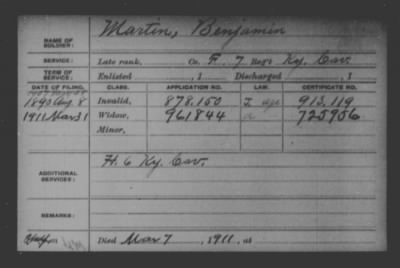 NAME OF SOLDIER: Martin, Benjamin
SERVICE: Late rank, Co. F, 7 Reg't Ky. Cav.
TERM OF SERVICE: Enlisted , 1 Discharged , 1
DATE OF FILING. CLASS. APPLICATION NO. LAW. CERTIFICATE NO.
1890 Aug. 8 Invalid, 878.150 913.119
1911 Mar 31 Widow, 961844 725956
Minor,
ADDITIONAL SERVICES: H. 6 Ky. Cav.
REMARKS:
Died Mar 7, 1911, at